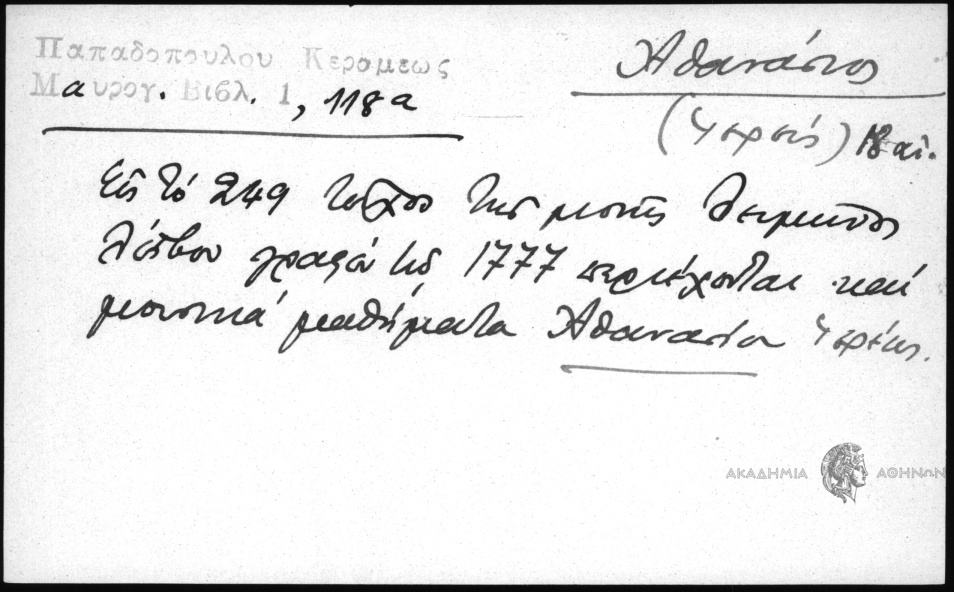 Παπαδοπουλου Κεραμεως
Μαυρογ. Βιβλ. 1, 118α
Ἀθανάσιος
(Ἱερεύς) 18 αἰ.
Εἰς τό 249 τεῦχος τῆς μονῆς Λειμῶνος
Λέσβου γραφέν τῷ 1777 περιέχονται καί
μουσικά μαθήματα Ἀθανασίου Ἱερέως.
ΑΚΑΔΗΜΙΑ ΑΘΗΝΩΝ